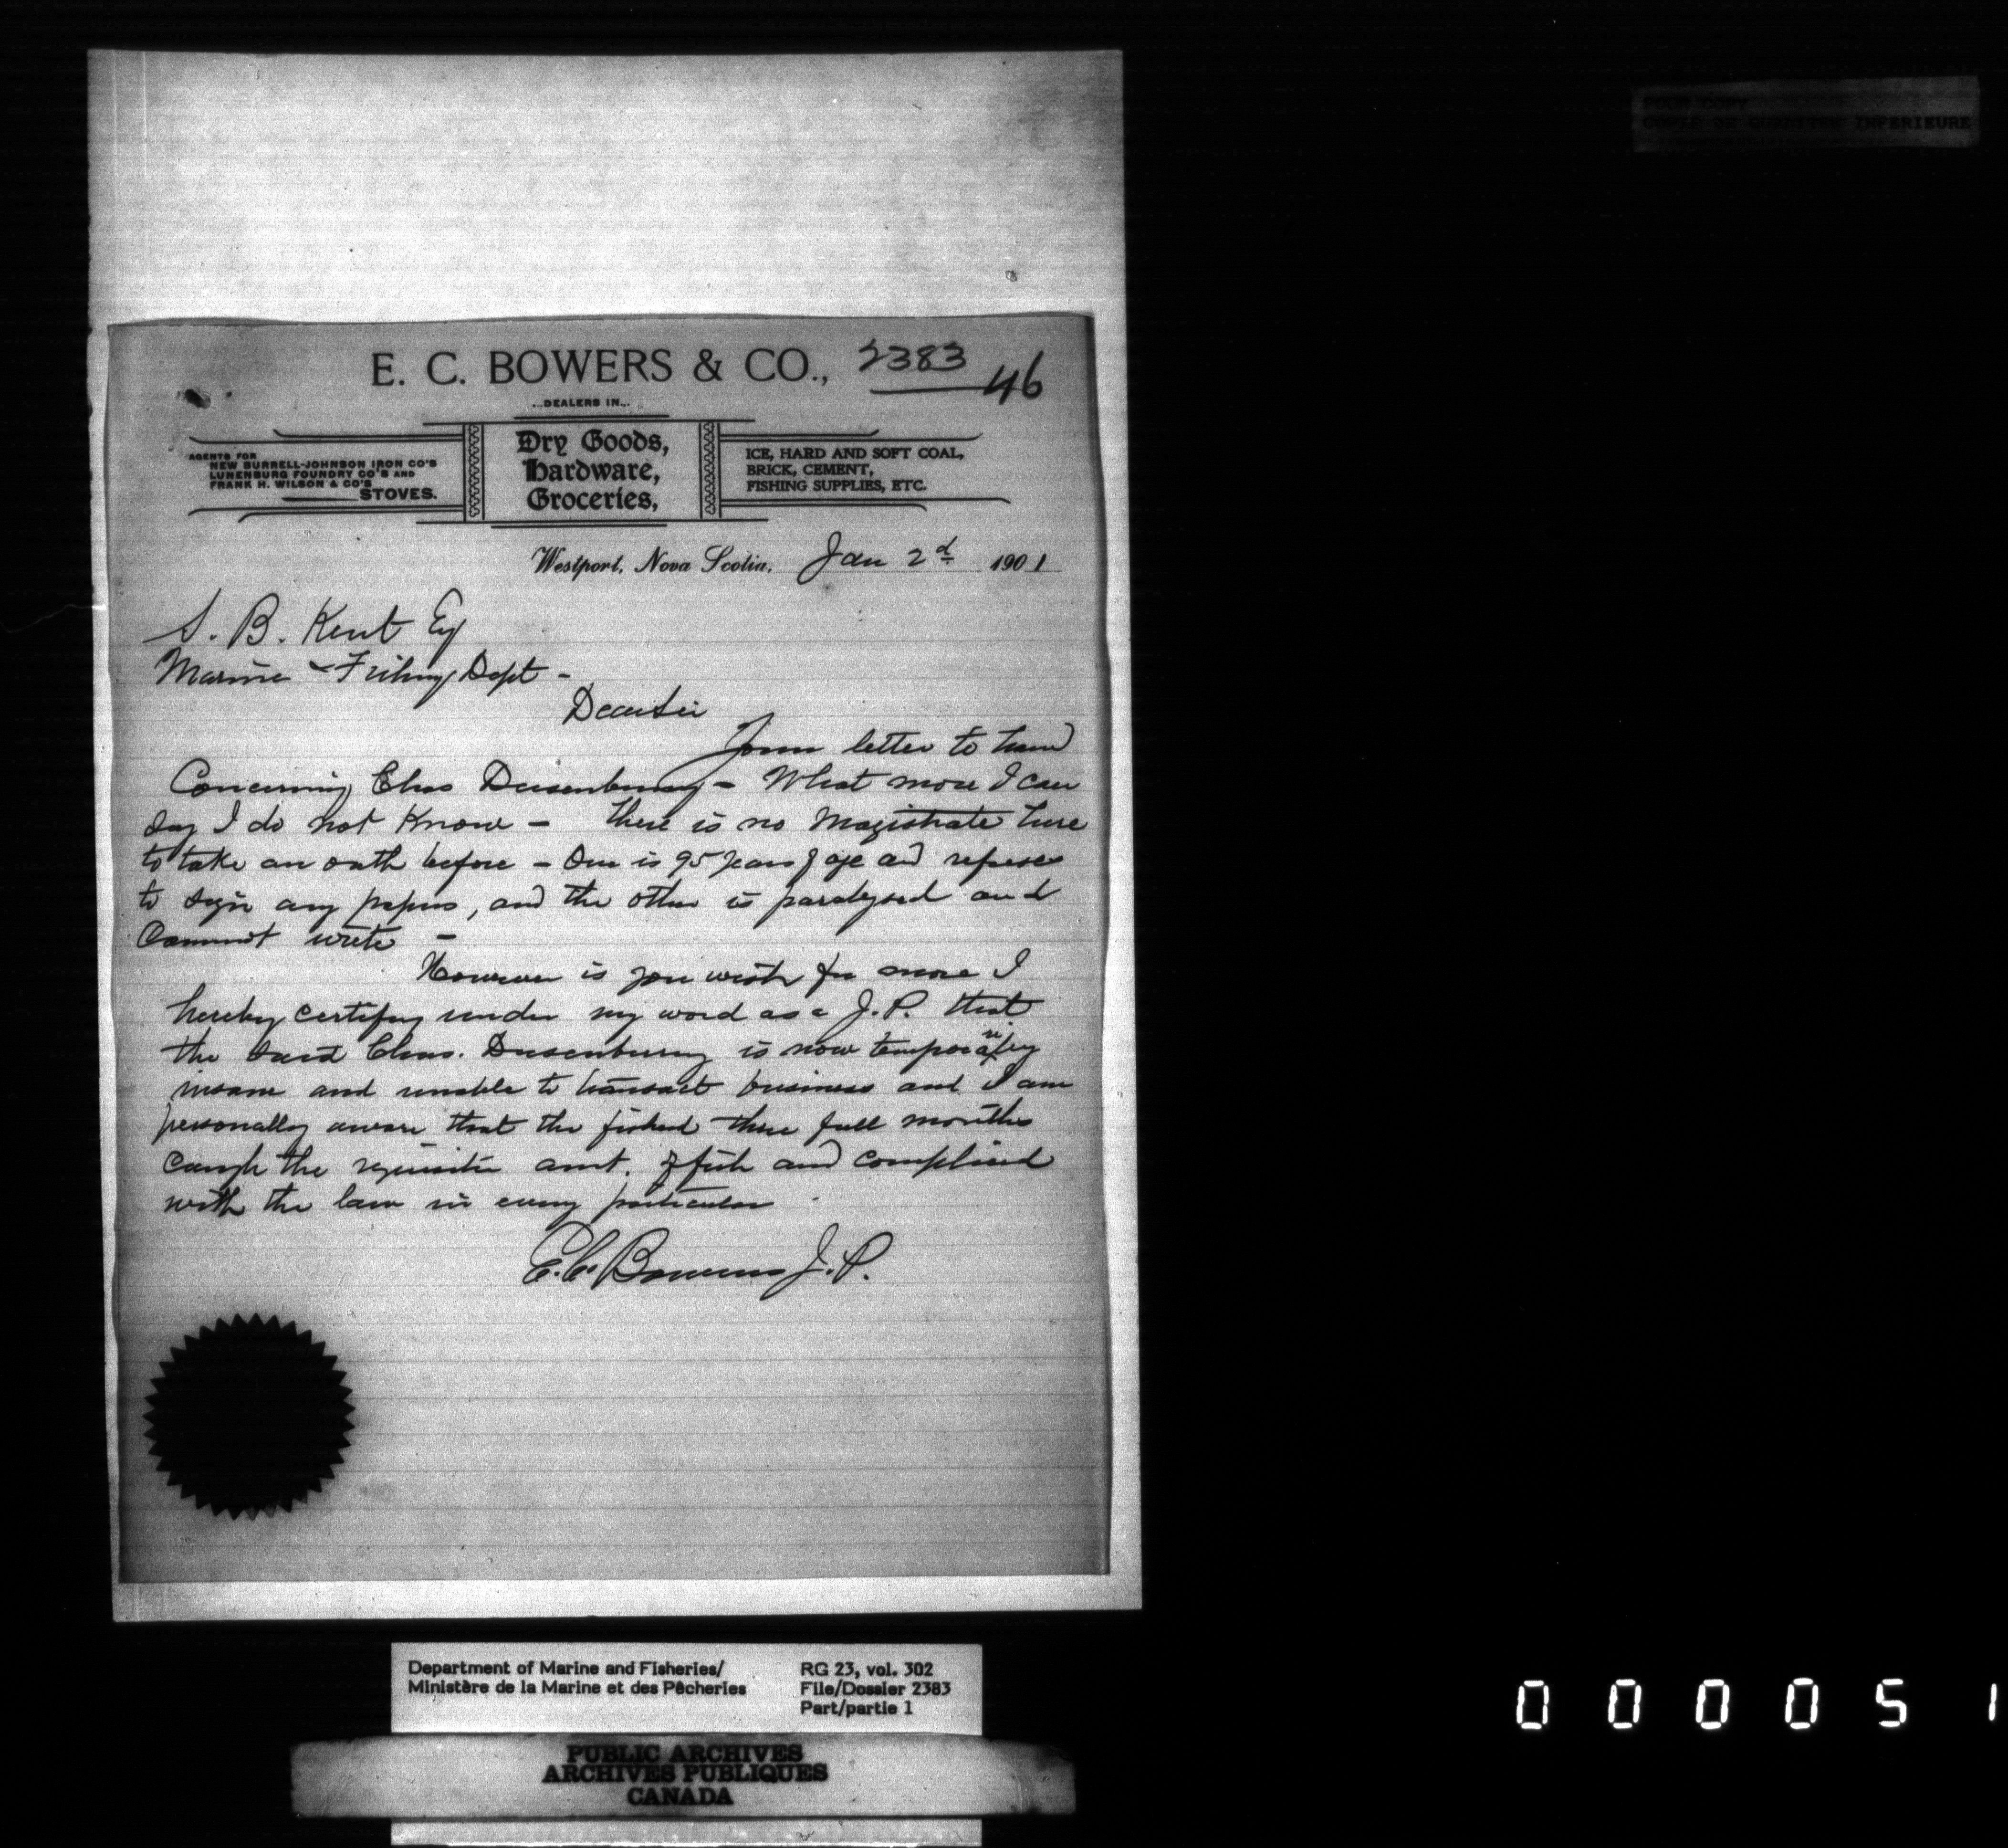 POOR COPY
COPIE DE QUALITEE INFERIEURE
E. C. BOWERS & CO.,
2383
46
...DEALERS IN...
AGENTS FOR
NEW BURRELL-JOHNSON IRON CO'S
LUNENBURG FOUNDRY CO'S AND
FRANK H. WILSON & CO'S
STOVES.
Dry Goods,
Hardware,
Groceries,
ICE, HARD AND SOFT COAL,
BRICK, CEMENT,
FISHING SUPPLIES, ETC.
Westport, Nova Scotia, Jan 2d 1901
S. B. Kent Esq
Marine & Fishery Dept -
Dear Sir
Your letter to hand
Concerning Chas Dusenbury - What more I can
say I do not Know - there is no Magistrate here
to take an oath before - One is 95 years of age and refuses
to sign any papers, and the other is paralyzed and
Cannot write -
However is you wish for more I
hereby certify under my word as a J.P. that
the said Chas. Dusenbury is now temporarily
insane and unable to transact business and I am
personally aware that the fished three full months
caugh the requisite amt. of fish and complied
with the law in every particular.
E.C. Bowers J.P.
Department of Marine and Fisheries/
Ministère de la Marine et des Pêcheries
RG 23, vol. 302
File/Dossier 2383
Part/partie 1
PUBLIC ARCHIVES
ARCHIVES PUBLIQUES
CANADA
0 0 0 0 5 1